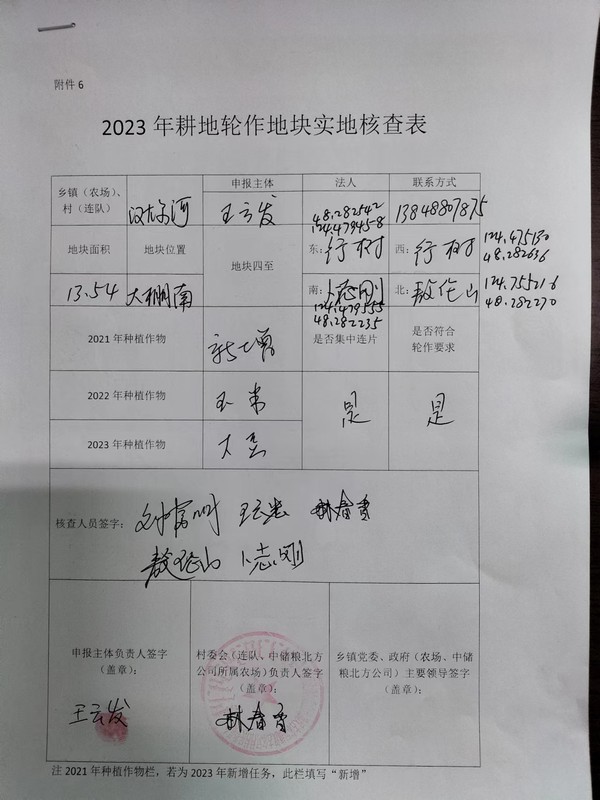 附件 6
2023 年耕地轮作地块实地核查表
乡镇（农场）、村（连队）
汉古尔河
申报主体
法人
联系方式
王云发
48.282542
124.479458
13848807875
地块面积
地块位置
地块四至
东：行树
西：行树
124.475130
48.282636
13.54
大棚南
南：卜志刚
124.479555
48.282235
北：敖拴山
124.755216
48.282270
2021 年种植作物
新增
是否集中连片
是否符合轮作要求
2022 年种植作物
玉米
是
是
2023 年种植作物
大豆
核查人员签字：
王云发
卜志刚
申报主体负责人签字（盖章）：
王云发
村委会（连队、中储粮北方公司所属农场）负责人签字（盖章）：
乡镇党委、政府（农场、中储粮北方公司）主要领导签字（盖章）：
注 2021 年种植作物栏，若为 2023 年新增任务，此栏填写“新增”